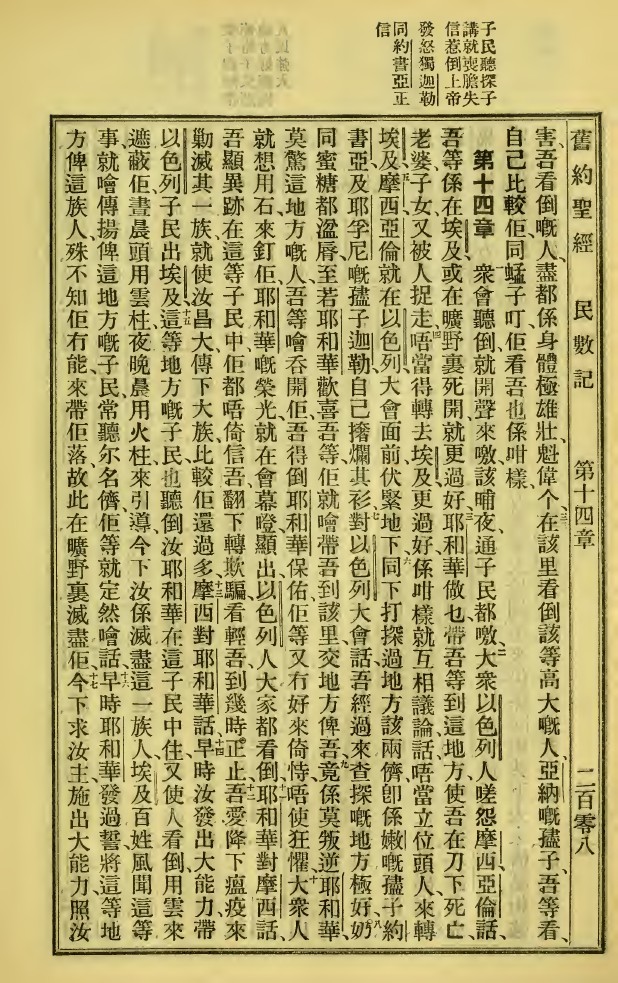 子民聽探子
講就喪膽失
信惹倒上帝
發怒獨迦勒
同約書亞正
信
舊約聖經 民數記 第十四章 二百零八
害、吾看倒嘅人、盡都係身體極雄壯魁偉个、三三在該里看倒該等高大嘅人、亞納嘅孻子、吾等看
自己比較佢、同蜢子叮、佢看吾也係咁樣、
第十四章 一衆會聽倒、就開聲來噭、該晡夜、通子民都噭、二大衆以色列人嗟怨摩西、亞倫、話、
吾等係在埃及、或在曠野裏死開、就更過好、三耶和華做乜帶吾等到這地方、使吾在刀下死亡、
老婆子女又被人捉走、唔當得轉去埃及、更過好、四係咁樣就互相議論話、唔當立位頭人、來轉
埃及、五摩西亞倫就在以色列大會面前、伏緊地下、六同下打探過地方該兩儕、卽係嫩嘅孻子約
書亞、及耶孚尼嘅孻子迦勒、自己撦爛其衫、七對以色列大會話、吾經過來查探嘅地方極好、八奶
同蜜糖都溢脣、至若耶和華歡喜吾等、佢就噲帶吾到該里、交地方俾吾、九竟係莫叛逆耶和華、
莫驚這地方嘅人、吾等噲呑開佢、吾得倒耶和華保佑、佢等又冇好來倚恃、唔使狂懼、十大衆人
就想用石來釘佢、耶和華嘅榮光、就在會幕瞪顯出、以色列人大家都看倒、十一耶和華對摩西話、
吾顯異跡在這等子民中、佢都唔倚信吾、翻下轉欺騙看輕吾、到幾時正止、十二吾愛降下瘟疫來
勦滅其一族、就使汝昌大、傳下大族、比較佢還過多、十三摩西對耶和華話、早時汝發出大能力、帶
以色列子民出埃及、十四這等地方嘅子民、也聽倒汝耶和華、在這子民中住、又使人看倒、用雲來
遮蔽佢、晝晨頭用雲柱、夜晚晨用火柱、來引導、十五今下汝係滅盡這一族人、埃及百姓、風聞這等
事、就噲傳揚、俾這地方嘅子民、常聽尔名儕、佢等就定然噲話、十六早時耶和華發過誓、將這等地
方俾這族人、殊不知佢冇能來帶佢落、故此在曠野裏滅盡佢、十七今下求汝主、施出大能力、照汝